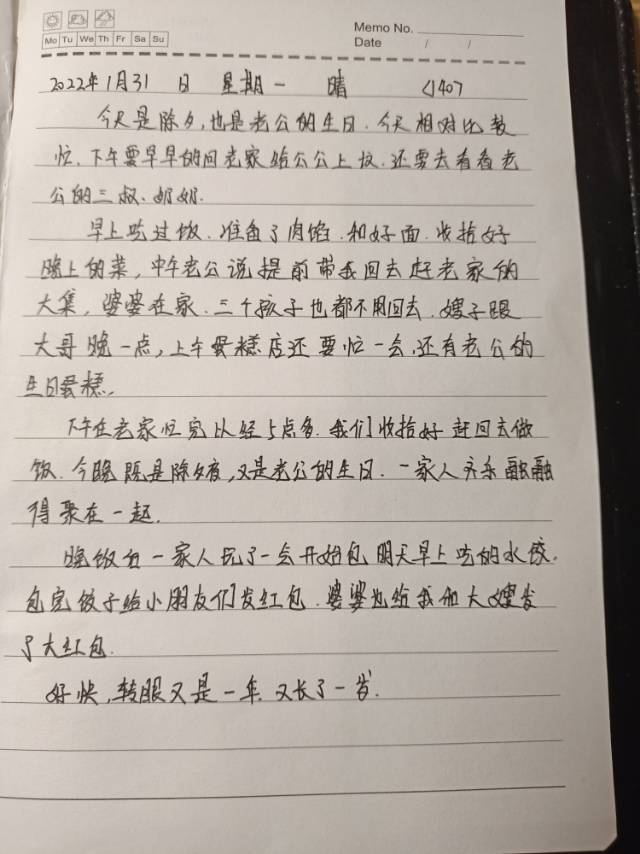 Memo No.
Mo Tu We Th Fr Sa Su
Date / /
2022年1月31日 星期一 晴 <140>
今天是除夕,也是老公的生日.今天相对比较
忙.下午要早早的回老家给公公上坟.还要去看看老
公的三叔、奶奶.
早上吃过饭.准备了肉馅.和好面.收拾好
晚上的菜,中午老公说提前带我回去赶老家的
大集,婆婆在家.三个孩子也都不用回去.嫂子跟
大哥晚一点,上午蛋糕店还要忙一会,还有老公的
生日蛋糕.
下午在老家忙完以经5点多.我们收拾好赶回去做
饭.今晚既是除夕夜,又是老公的生日.一家人齐乐融融
得聚在一起.
晚饭后一家人玩了一会开始包明天早上吃的水饺.
包完饺子给小朋友们发红包.婆婆也给我和大嫂发
了大红包.
好快,转眼又是一年.又长了一岁.